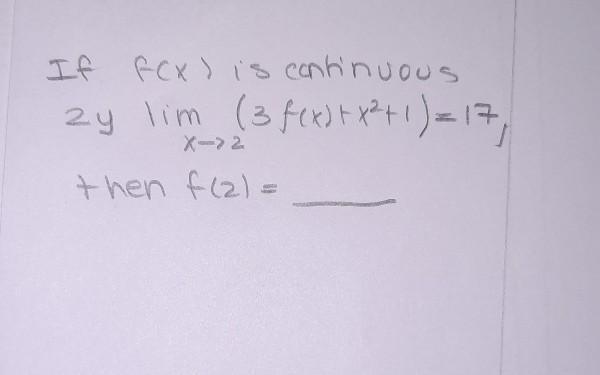 If f(x) is continuous
zy lim (3 f(x) + x²+1) = 17,
x->2
then f(2) = ____